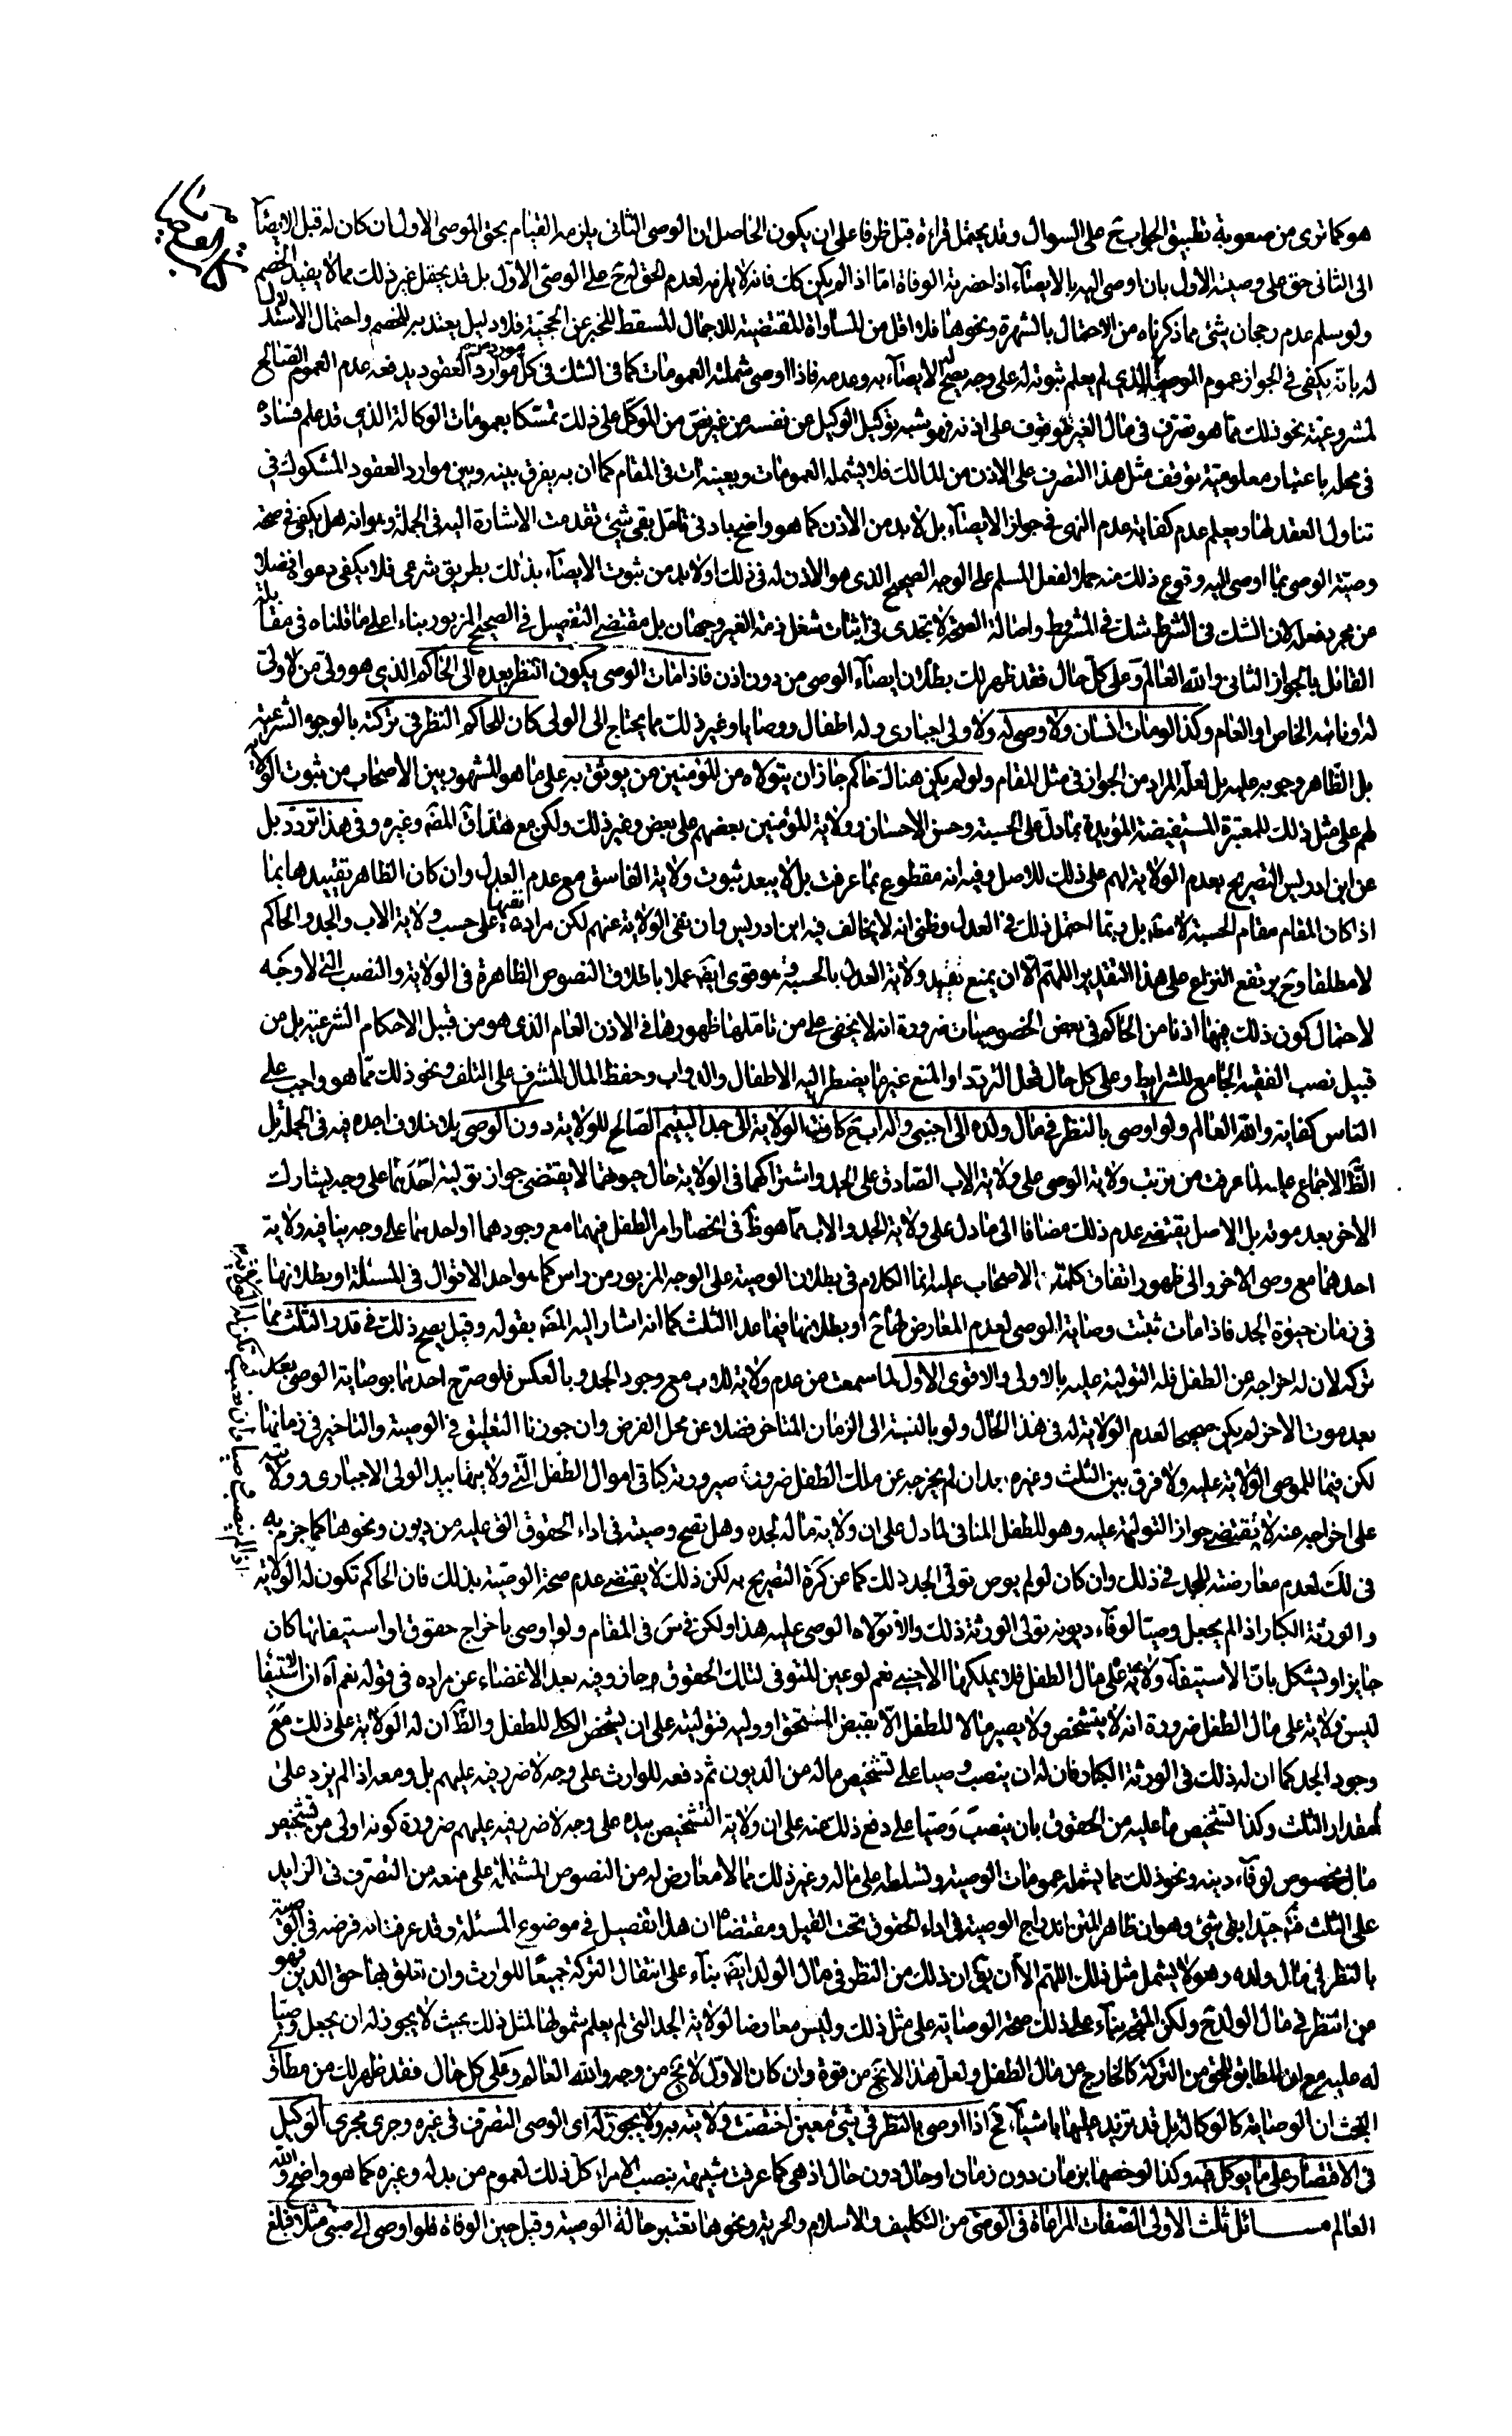 هو كما ترى من صعوبة تطبيق الجواب ح على السوال وقد يحتمل قراءة قبل ظرفا على ان يكون الحاصل ان الوصى الثانى يلزمه القيام بحق الموصى الاول ان كان له قبل الايصآء
الى الثانى حق على وصيته الاول بان اوصى اليه بالايصآء اذا حضرته الوفاة امّا اذا لم يكن كك فانه لا يلزمه لعدم الحق له ح على الوصى الاوّل بل قد يحتمل غير ذلك مما لا يفيد الخصم
ولو سلم عدم رجحان شئ مما ذكرناه من الاحتمال بالشهرة ونحوها فلا اقل من المساواة المقتضية للاجمال المسقط للخبر عن الحجيّة فلا دليل يعتد به للخصم واحتمال الاستدلال
له بانّه يكفى فى الجواز عموم الموصى الذى لم يعلم ثبوته له على وجه يصح له الايصآء به وعدمه فاذا اوصى شملته العمومات كما فى الشك فى كل مورد من موارد العقود يدفعه عدم العموم الصّالح
لمشروعيته نحو ذلك مما هو تصرف فى مال الغير الموقوف على اذنه فهو شبه توكيل الوكيل عن نفسه من غير نص من الموكّل على ذلك تمسّكا بعمومات الوكالة الذى قد علم فساده
فى محله باعتبار معلوميّة توقف مثل هذا التصرف على الاذن من المالك فلا يشمله العمومات وبعينه ات فى المقام كما ان به يفرق بينه وبين موارد العقود المشكوك فى
تناول العقد لها ويعلم عدم كفاية عدم النهى فى جواز الايصآء بل لا بد من الاذن كما هو واضح بادنى تامّل بقى شئ تقدمت الاشارة اليه فى الجملة وهو انه هل يكفى فى صحة
وصيّة الوصى بما اوصى اليه وقوع ذلك منه حملا لفعل المسلم على الوجه الصحيح الذى هو الاذن له فى ذلك او لا بد من ثبوت الايصآء بذلك بطريق شرعى فلا يكفى دعواه فضلا
عن مجرد فعله لان الشك فى الشرط شك فى المشروط واصالة الصحّة لا تجدى فى اثبات شغل ذمة الغير وجهان بل مقتضى التفصيل فى الصحيح المزبور بناء على ما قلناه فى مقابلة
القائل بالجواز الثانى والله العالم وعلى كلّ حال فقد ظهر لك بطلان ايصآء الوصى من دون اذن فاذا مات الوصى يكون النظر بعده الى الحاكم الذى هو ولىّ من لا ولىّ
له ونائبه الخاص او العام وكذا لو مات انسان ولا وصى له ولا ولى اجبارى وله اطفال ووصايا وغير ذلك مما يحتاج الى الولى كان للحاكم النظر فى تركته بالوجوه الشرعية
بل الظاهر وجوبه عليه بل لعله المراد من الجواز فى مثل المقام ولو لم يكن هناك حاكم جاز ان يتولاه من المؤمنين من يوثق به على ما هو المشهور بين الاصحاب من ثبوت الولاية
لهم على مثل ذلك للمعتبرة المستفيضة المؤيدة بما دلّ على الحسبة وحسن الاحسان وولاية المؤمنين بعضهم على بعض وغير ذلك ولكن مع هذا قال المصَ وغيره وفى هذا تردّد بل
عن ابن ادريس التصريح بعدم الولاية لهم على ذلك للاصل وفيه انه مقطوع بما عرفت بل لا يبعد ثبوت ولاية الفاسق مع عدم العدل وان كان الظاهر تقييدها بما
اذا كان المقام مقام الحسبة لا مطَ بل ربّما احتمل ذلك فى العدل وظنى انه لا يخالف فيه ابن ادريس وان نفى الولاية عنهم لكن مراده نفيها على حسب ولاية الاب والجد والحاكم
لا مطلقا وح يرتفع النزاع على هذا التقدير اللهمّ الّا ان يمنع تقييد ولاية العدل بالحسبة وهو قوى ايضَ عملا باطلاق النصوص الظاهرة فى الولاية والنصب التى لا وجه
لاحتمال كون ذلك فيها اذنا من الحاكم فى بعض الخصوصيات ضرورة انه لا يخفى على من تامّلها ظهورها فى الاذن العام الذى هو من قبيل الاحكام الشرعية بل من
قبيل نصب الفقيه الجامع للشرايط وعلى كل حال فمحل التردّد او المنع غير ما يضطر اليه الاطفال والدواب وحفظ المال المشرف على التلف ونحو ذلك ممّا هو واجب على
الناس كفاية والله العالم ولو اوصى بالنظر فى مال ولده الى اجنبى وله اب ح كانت الولاية الى جد اليتيم الصّالح للولاية دون الوصى بلا خلاف اجده فيه فى الجملة بل
الظَّ الاجماع عليه لما عرفت من ترتب ولاية الوصى على ولاية الاب الصّادق على الجد واشتراكهما فى الولاية حال حيوتهما لا يقتضى جواز تولية احدهما على وجه يشارك
الاخر بعد موته بل الاصل يقتضى عدم ذلك مضافا الى ما دل على ولاية الجد والاب ممّا هو ظَ فى انحصار امر الطفل فيهما مع وجودهما او احدهما على وجه ينافيه ولاية
احدهما مع وصى الاخر والى ظهور اتفاق كلمة الاصحاب عليه انما الكلام فى بطلان الوصية على الوجه المزبور من راس كما هو احد الاقوال فى المسئلة او بطلانها
فى زمان حيوة الجد فاذا مات ثبتت وصاية الوصى لعدم المعارض لها ح او بطلانها فيما عدا الثلث كما انه اشار اليه المصَ بقوله وقيل يصح ذلك فى قدر الثلث مما
تركه لان له اخراجه عن الطفل فله التولية عليه بالاولى والاقوى الاول لما سمعت من عدم ولاية للاب مع وجود الجد وبالعكس فلو صرّح احدهما بوصاية الوصى بعد
بعد موت الاخر لم يكن صحيحا لعدم الولاية له فى هذا الحال ولو بالنسبة الى الزمان المتاخر فضلا عن محل الفرض وان جوزنا التعليق فى الوصية والتاخير فى زمانها
لكن فيما للموصى الولاية عليه ولا فرق بين الثلث وغيره بعد ان لم يخرجه عن ملك الطفل ضرورة صيرورته كباقى اموال الطفل التى ولايتها بيد الولى الاجبارى وولايته
على اخراجه عنه لا يقتضى جواز التولية عليه وهو للطفل المنافى لما دل على ان ولاية ماله لجده وهل تصح وصيته فى اداء الحقوق التى عليه من ديون ونحوها كما جزم به
فى لك لعدم معارضته للجد فى ذلك وان كان لو لم يوص تولى الجد ذلك كما عن كرة التصريح به لكن ذلك لا يقتضى عدم صحة الوصيّة بذلك فان الحاكم تكون له الولاية
والورثة الكبار اذا لم يجعل وصيّا لوفآء ديونه تولى الورثة ذلك والا تولاه الوصى عليه هذا ولكن فى س فى المقام ولو اوصى باخراج حقوق او استيفائها كان
جايزا ويشكل بانّ الاستيفآء ولاية على مال الطفل فلا يملكها الاجنبى نعم لو عين المتوفى لتلك الحقوق جاز وفيه بعد الاغضاء عن مراده فى قوله نعم آه ان الاستيفا
ليس ولاية على مال الطفل ضرورة انه لا يتشخص ولا يصير مالا للطفل الّا بقبض المستحق او وليه فتوليته على ان يشخص الكلى للطفل والظَّ ان له الولاية على ذلك مع
وجود الجد كما ان له ذلك فى الورثة الكبار فان له ان ينصب وصيا على تشخيص ماله من الديون ثم دفعه للوارث على وجه لا ضرر فيه عليهم بل ومعه اذا لم يزد على
مقدار الثلث وكذا تشخيص ما عليه من الحقوق بان ينصب وصيّا على دفع ذلك عنه على ان ولاية التشخيص بيده على وجه لا ضرر فيه عليهم ضرورة كونه اولى من تشخيص
مال مخصوص لوفآء دينه ونحو ذلك مما يشمله عمومات الوصية وتسلطه على ماله وغير ذلك مما لا معارض له من النصوص المشتملة على منعه من التصرف فى الزايد
على الثلث فتَّم جيّدا بقى شئ وهو ان ظاهر المتن اندراج الوصية فى اداء الحقوق تحت القيل ومقتضاه ان هذا تفصيل فى موضوع المسئلة وقد عرفت انه فرضه فى الوصية
بالنظر فى مال ولده وهو لا يشمل مثل ذلك اللهّم الا ان يق ان ذلك من النظر فى مال الولد ايضَ بناء على انتقال التركة جميعًا للوارث وان تعلق بها حق الدين فهو
من النظر فى مال الولد ح ولكن المتجه بناء على ذلك صحة الوصاية على مثل ذلك وليس معارضا لولاية الجد التى لم يعلم شمولها لمثل ذلك بحيث لا يجوز له ان يجعل وصيّا
له عليه مع ان المطابق للحق من التركة كالخارج عن مال الطفل ولعل هذا لا يخ من قوة وان كان الاوّل لا يخ من وجه والله العالم وعلى كل حال فقد ظهر لك من مطاوى
البحث ان الوصاية كالوكالة بل قد تزيد عليها باشيآء فح اذا اوصى بالنظر فى شئ معين اختصت ولايته به ولا يجوز له اى الوصى التصرف فى غيره وجرى مجرى الوكيل
فى الاقتصار على ما يوكل فيه وكذا لو خصها بزمان دون زمان او حال دون حال اذ هى كما عرفت شبيهة بنصب الامراء كل ذلك لعموم من بدله وغيره كما هو واضح والله
العالم مسائل ثلث الاولى الصّفات المراعاة فى الوصى من التكليف والاسلام والحرية ونحوها تعتبر حالة الوصية وقيل حين الوفاة فلو اوصى الى صبى مثلا فبلغ